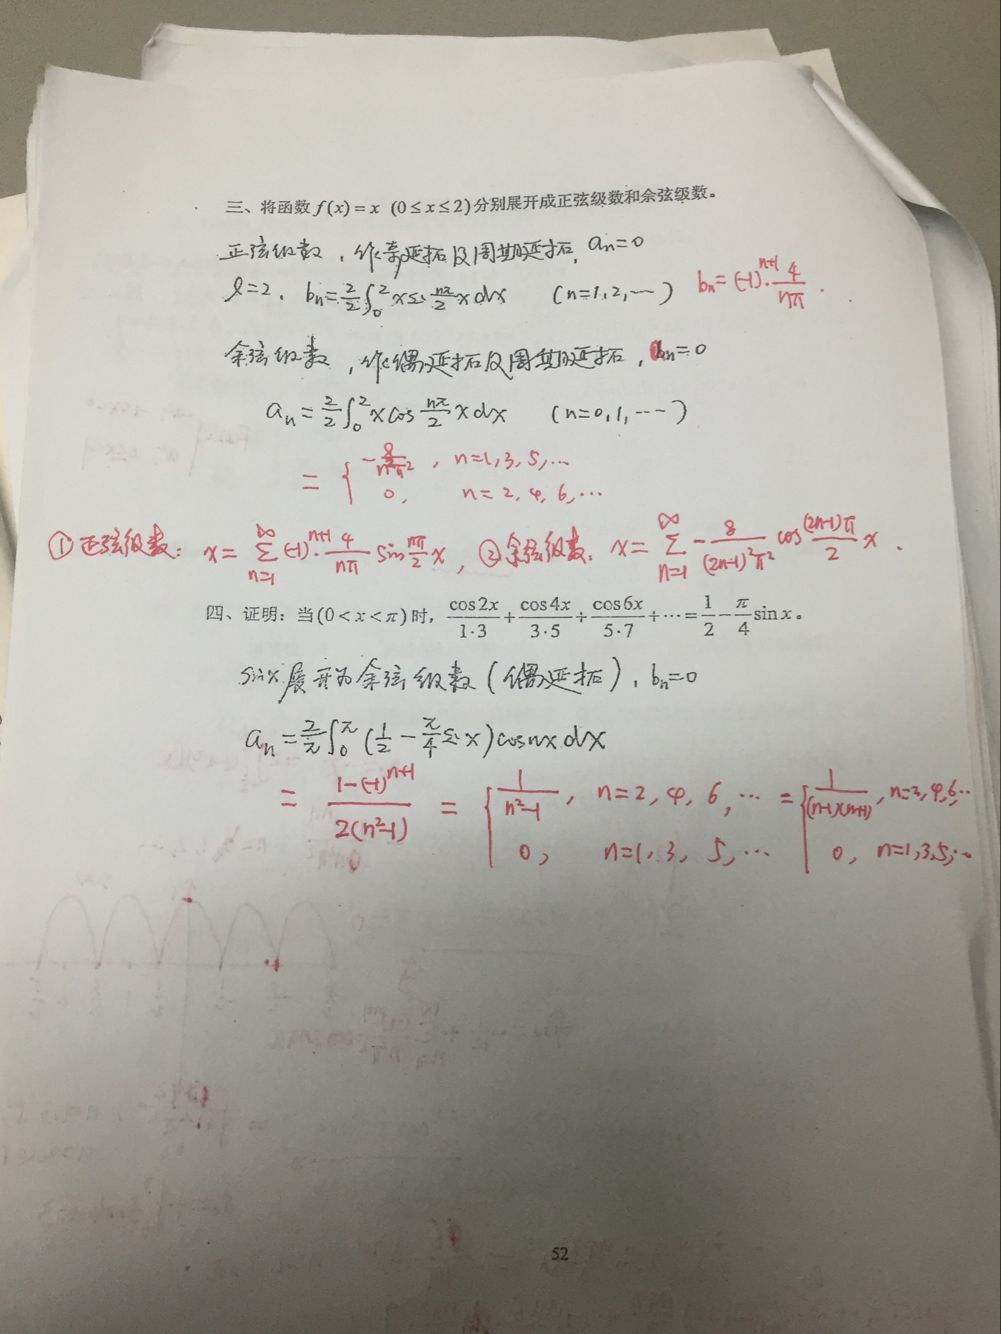 三、将函数 f(x) = x (0≤x≤2)分别展开成正弦级数和余弦级数。
正弦级数，作奇延拓及周期延拓, aₙ=0
l=2. bₙ=2/2∫₀²x sin nπ/2 x dx (n=1,2,…) bₙ=(-1)ⁿ⁺¹·4/nπ.
余弦级数，作偶延拓及周期延拓，bₙ=0
aₙ=2/2∫₀²x cos nπ/2 x dx (n=0,1,…)
= { -8/n²π², n=1,3,5,…
0, n=2,4,6,…
①正弦级数: x=∑_{n=1}^{∞}(-1)ⁿ⁺¹·4/nπ sin nπ/2 x, ②余弦级数: x=∑_{n=1}^{∞} -8/(2n-1)²π² cos (2n-1)π/2 x.
四、证明：当(0<x<π)时，cos2x/1·3+cos4x/3·5+cos6x/5·7+⋯=1/2-π/4 sin x。
sinx展开为余弦级数(偶延拓), bₙ=0
aₙ=2/π∫₀^π(1/2-π/4 sin x)cosnx dx
=1-(-1)ⁿ⁺¹/2(n²-1)={ 1/n²-1, n=2,4,6,… ={ 1/(n-1)(n+1), n=2,4,6…
0, n=1,3,5,… 0, n=1,3,5,…
52